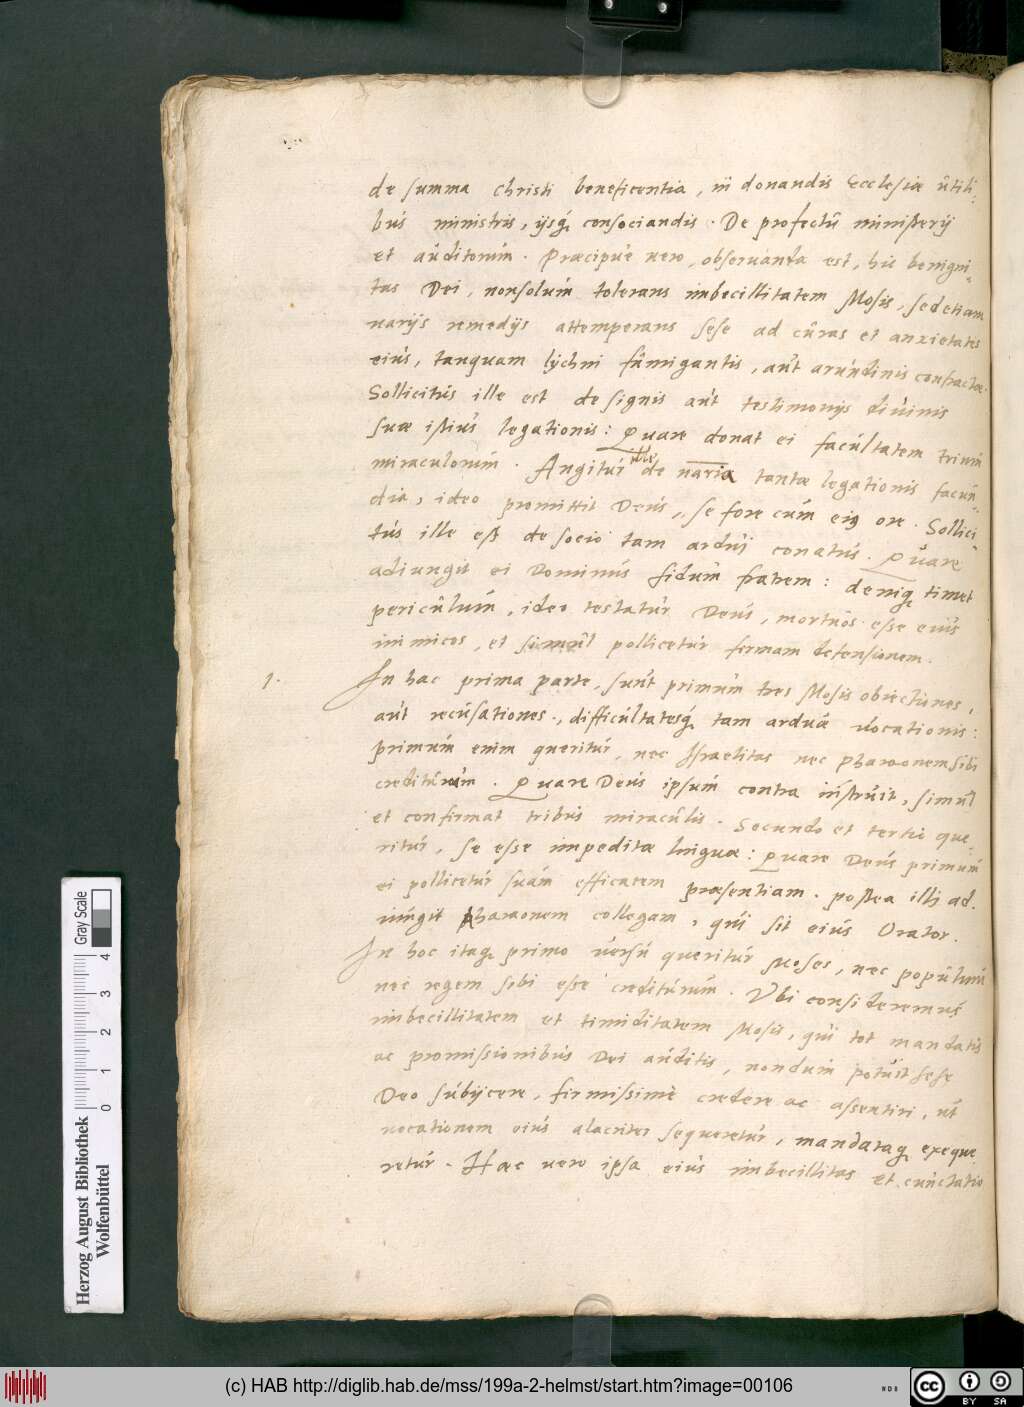 de summa Christi beneficentia, in donandis Ecclesiæ utili:
bus ministris, ijsq́ȝ consociandis. De profectu ministerij
et auditorum. Præcipuè vero, observanda est, hic benigni=
tas Dei, nonsolum tolerans imbecillitatem Mosis, sed etiam
varijs remedijs attemperans sese ad curas et anxietates
eius, tanquam lychni fumigantis, aut arundinis confractæ.
Sollicitus ille est de signis aut testimonijs divinis
suæ istius legationis: Quare donat ei facultatem trium
miraculorum. Angitur ille de varia tantæ legationis facun=
dia, ideo promittit Deus, se fore cum eiꝰ ore. Sollici=
tus ille est de socio tam ardui conatus. Quare
adiungit ei Dominus fidum fratrem: deniqȝ timet
periculum, ideo testatur Deus, mortuos esse eius
inimicos, et simul pollicetur firmam defensionem.
1. In hac prima parte, sunt primum tres Mosis obiectiones,
aut recusationes, difficultatesq́ȝ tam arduæ vocationis:
primum enim queritur, nec Israelitas nec Pharaonem sibi
crediturum. Quare Deus ipsum contra instruit, simul
et confirmat tribus miraculis. Secundo et tertiò que=
ritur, se esse impeditæ linguæ: Quare Deus primum
ei pollicetur suam efficacem præsentiam. postea illi ad.
iungit Pharaonem collegam, qui sit eius Orator.
In hoc itaqȝ primo versu queritur Moses, nec populum
nec regem sibi esse crediturum. Ubi consideremus
imbecillitatem et timiditatem Mosis, qui tot mandatis
ac promissionibus Dei auditis, nondum potuit sese
Deo subijcere, firmissimè credere ac assentiri, ut
vocationem eius alacriter sequeretur, mandataqȝ exeque
retur. Hæc vero ipsa eius imbecillitas et cunctatio
Herzog August Bibliothek
Wolfenbüttel
0 1 2 3 4
Gray Scale
(c) HAB http://diglib.hab.de/mss/199a-2-helmst/start.htm?image=00106
cc BY SA